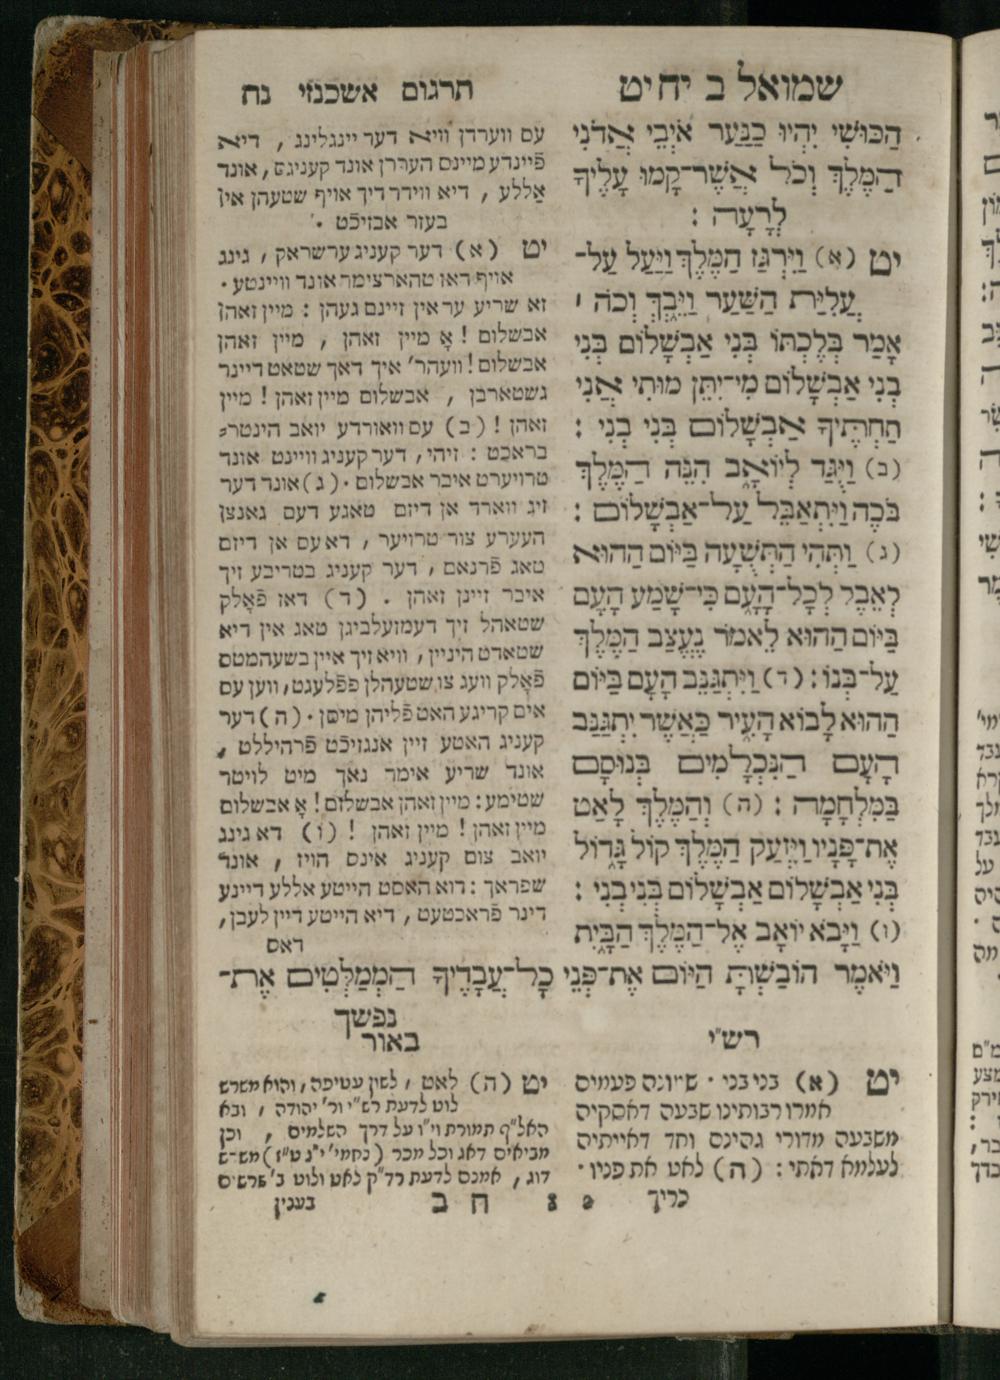 שמואל ב יח יט
תרגום אשכנזי נח
הַכּוּשִׁי יִהְיוּ כַנַּעַר אֹיְבֵי אֲדֹנִי
הַמֶּלֶךְ וְכֹל אֲשֶׁר־קָמוּ עָלֶיךָ
לְרָעָה :
יט (א) וַיִּרְגַּז הַמֶּלֶךְ וַיַּעַל עַל־
עֲלִיַּת הַשַּׁעַר וַיֵּבְךְּ וְכֹה ׀
אָמַר בְּלֶכְתּוֹ בְּנִי אַבְשָׁלוֹם בְּנִי
בְנִי אַבְשָׁלוֹם מִי־יִתֵּן מוּתִי אֲנִי
תַחְתֶּיךָ אַבְשָׁלוֹם בְּנִי בְנִי :
(ב) וַיֻּגַּד לְיוֹאָב הִנֵּה הַמֶּלֶךְ
בֹּכֶה וַיִּתְאַבֵּל עַל־אַבְשָׁלוֹם :
(ג) וַתְּהִי הַתְּשֻׁעָה בַּיּוֹם הַהוּא
לְאֵבֶל לְכָל־הָעָם כִּי־שָׁמַע הָעָם
בַּיּוֹם הַהוּא לֵאמֹר נֶעֱצַב הַמֶּלֶךְ
עַל־בְּנוֹ : (ד) וַיִּתְגַּנֵּב הָעָם בַּיּוֹם
הַהוּא לָבוֹא הָעִיר כַּאֲשֶׁר יִתְגַּנֵּב
הָעָם הַנִּכְלָמִים בְּנוּסָם
בַּמִּלְחָמָה : (ה) וְהַמֶּלֶךְ לָאַט
אֶת־פָּנָיו וַיִּזְעַק הַמֶּלֶךְ קוֹל גָּדוֹל
בְּנִי אַבְשָׁלוֹם אַבְשָׁלוֹם בְּנִי בְנִי :
(ו) וַיָּבֹא יוֹאָב אֶל־הַמֶּלֶךְ הַבָּיִת
וַיֹּאמֶר הוֹבַשְׁתָּ הַיּוֹם אֶת־פְּנֵי כָל־עֲבָדֶיךָ הַמְמַלְּטִים אֶת־
נפשך
עם ווערדן וויא דער יינגלינג , דיא
פֿיינדע מיינם העררן אונד קעניגס , אונד
אַללע , דיא ווידר דיך אויף שטעהן אין
בעזר אבזיכֿט .
יט (א) דער קעניג ערשראק , גינג
אויף דאז טהארצימר אונד וויינטע .
זא שריע ער אין זיינם געהן : מיין זאהן
אבשלום ! אָ מיין זאהן , מיין זאהן
אבשלום ! וועהר' איך דאך שטאט דיינר
געשטארבן , אבשלום מיין זאהן ! מיין
זאהן ! (ב) עם וואורדע יואב הינטר⸗
בראכט : זיהי , דער קעניג וויינט אונד
טרויערט איבר אבשלום . (ג) אונד דער
זיג ווארד אן דיזם טאגע דעם גאנצן
העערע צור טרויער , דא עם אן דיזם
טאג פֿרנאם , דער קעניג בטריבע זיך
איבר זיינן זאהן . (ד) דאז פֿאָלק
שטאהל זיך דעמזעלביגן טאג אין דיא
שטאדט היניין , וויא זיך איין בשעהמטס
פֿאָלק וועג צו שטעהלן פפֿלעגט , ווען עס
אים קריגע האט פֿליהן מיסן . (ה) דער
קעניג האטע זיין אנגזיכֿט פֿרהיללט ,
אונד שריע אימר נאך מיט לויטר
שטימע : מיין זאהן אבשלום ! אָ אבשלום
מיין זאהן ! מיין זאהן ! (ו) דא גינג
יואב צום קעניג אינס הויז , אונד
שפראך : דוא האסט הייטע אללע דיינע
דינר פֿראכטעט , דיא הייטע דיין לעבן ,
דאס
רש"י
יט (א) בני בני . שמונה פעמים
אמרו רבותינו שבעה דאסקיה
משבעה מדורי גהינם וחד דאייתיה
לעלמא דאתי : (ה) לאט את פניו .
כריך
באור
יט (ה) לאט , לשון עטיפה , והוא משרש
לוט לדעת רש"י ור' יהודה , ובא
האל"ף תמורת וי"ו על דרך השלמים , וכן
מביאים דאג וכל מכר (נחמי' י"ג ט"ז) משרש
דוג , אמנם לדעת רד"ק לאט ולוט ב' שרשים
בענין
ח ב